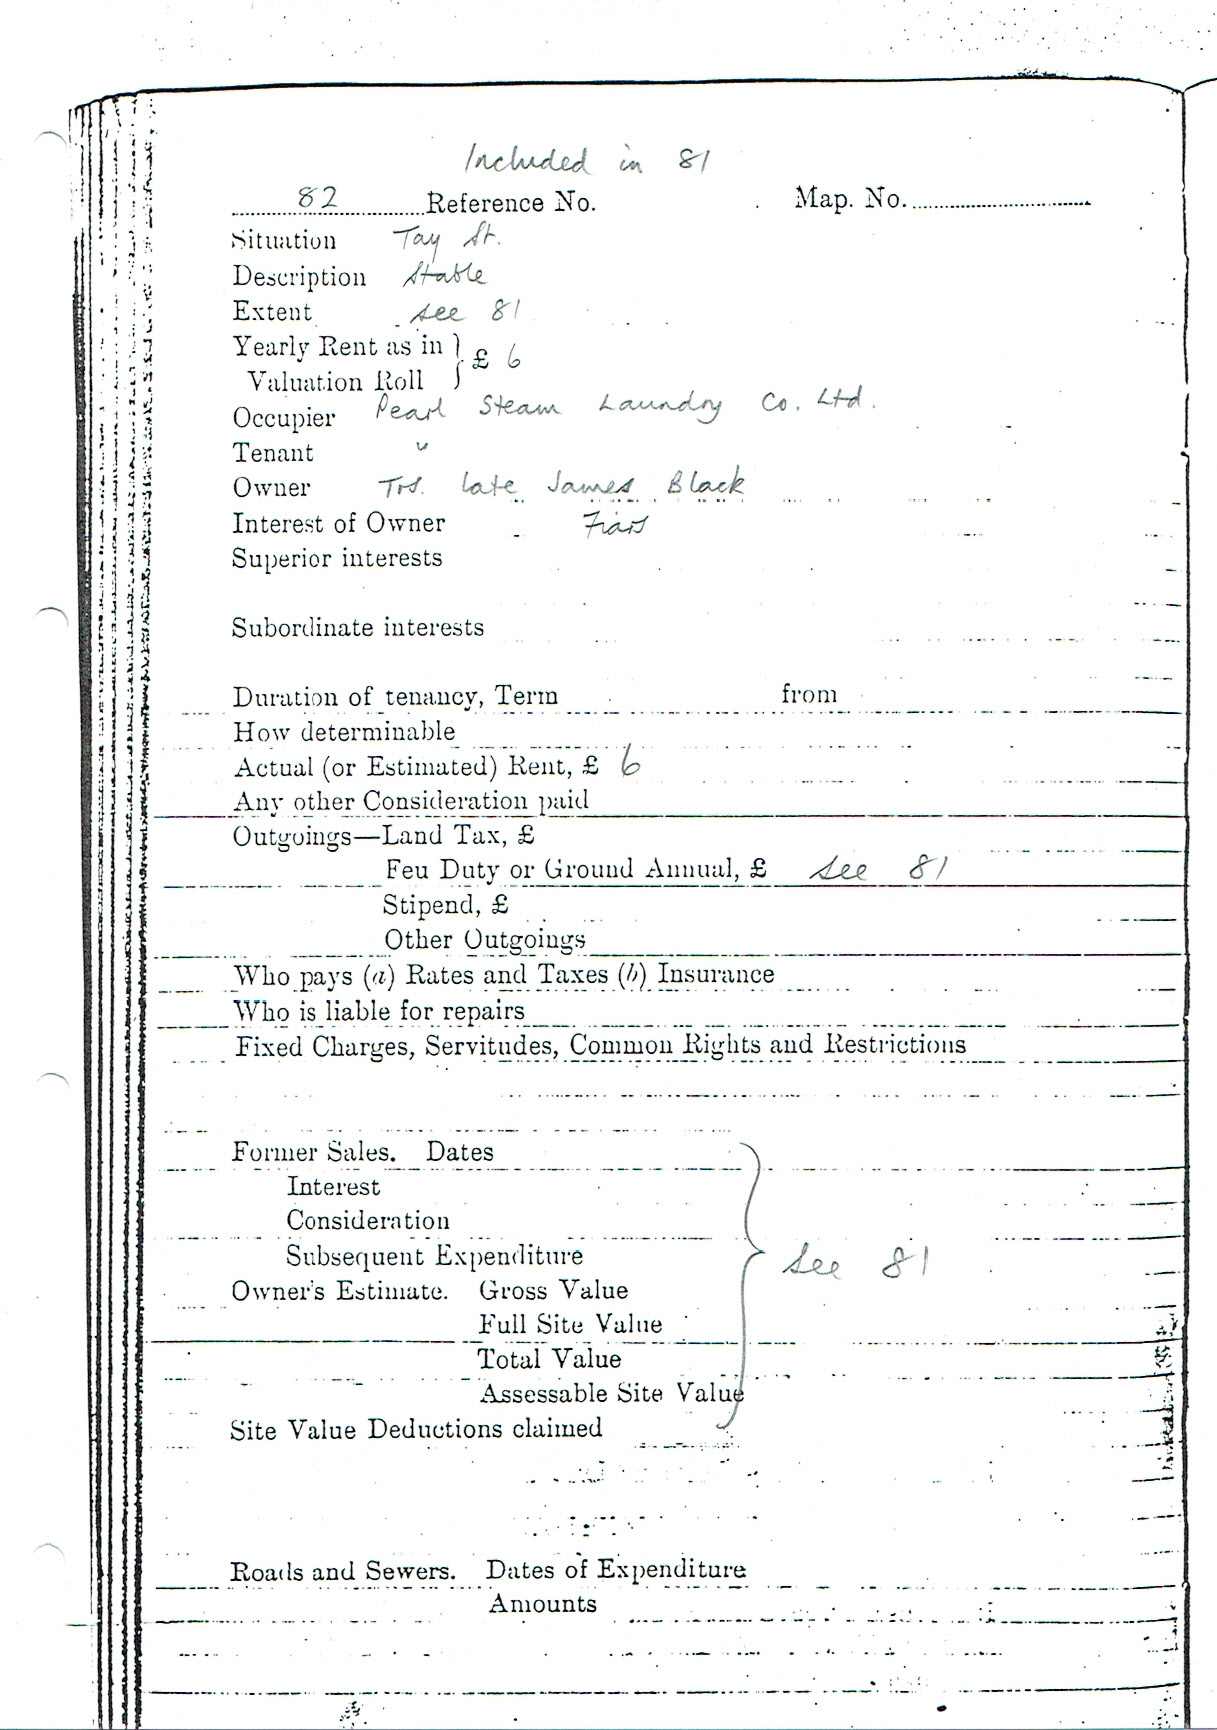 Included in 81
82 Reference No. Map. No.
Situation Tay St.
Description Stable
Extent see 81
Yearly Rent as in
Valuation Roll } £ 6
Occupier Pearl Steam Laundry Co. Ltd.
Tenant "
Owner Trs. late James Black
Interest of Owner Fiars
Superior interests
Subordinate interests
Duration of tenancy, Term from
How determinable
Actual (or Estimated) Rent, £ 6
Any other Consideration paid
Outgoings—Land Tax, £
Feu Duty or Ground Annual, £ See 81
Stipend, £
Other Outgoings
Who pays (a) Rates and Taxes (b) Insurance
Who is liable for repairs
Fixed Charges, Servitudes, Common Rights and Restrictions
Former Sales. Dates
Interest
Consideration
Subsequent Expenditure
See 81
Owner's Estimate. Gross Value
Full Site Value
Total Value
Assessable Site Value
Site Value Deductions claimed
Roads and Sewers. Dates of Expenditure
Amounts